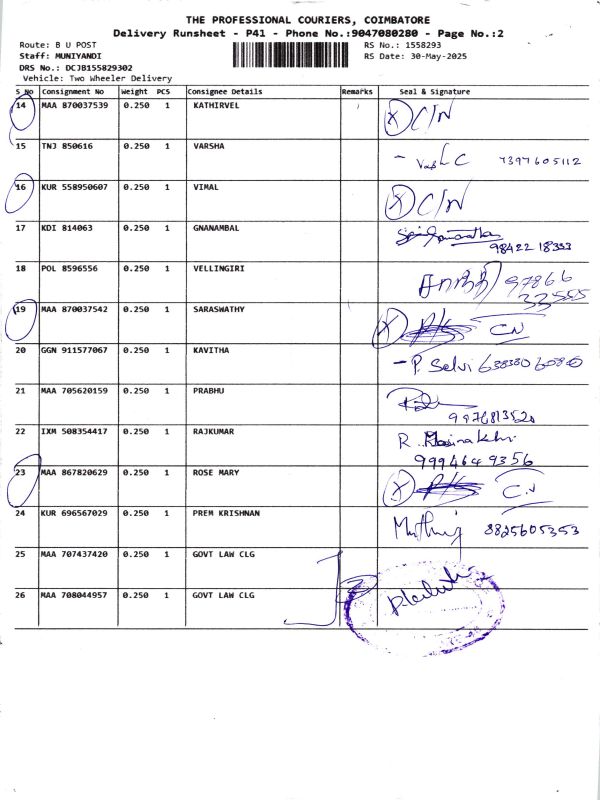 THE PROFESSIONAL COURIERS, COIMBATORE
Delivery Runsheet - P41 - Phone No.:9047080280 - Page No.:2
Route: B U POST
RS No.: 1558293
Staff: MUNIYANDI
RS Date: 30-May-2025
DRS No.: DCJB155829302
Vehicle: Two Wheeler Delivery
S No Consignment No Weight PCS Consignee Details Remarks Seal & Signature
14 MAA 870037539 0.250 1 KATHIRVEL X C/N
15 TNJ 850616 0.250 1 VARSHA - C 7397605112
16 KUR 558950607 0.250 1 VIMAL X C/N
17 KDI 814063 0.250 1 GNANAMBAL
98422 18333
18 POL 8596556 0.250 1 VELLINGIRI 97866
33555
19 MAA 870037542 0.250 1 SARASWATHY X CN
20 GGN 911577067 0.250 1 KAVITHA - P. Selvi
21 MAA 705620159 0.250 1 PRABHU
22 IXM 508354417 0.250 1 RAJKUMAR R.
9994649356
23 MAA 867820629 0.250 1 ROSE MARY X C.N
24 KUR 696567029 0.250 1 PREM KRISHNAN 8825605353
25 MAA 707437420 0.250 1 GOVT LAW CLG
26 MAA 708044957 0.250 1 GOVT LAW CLG